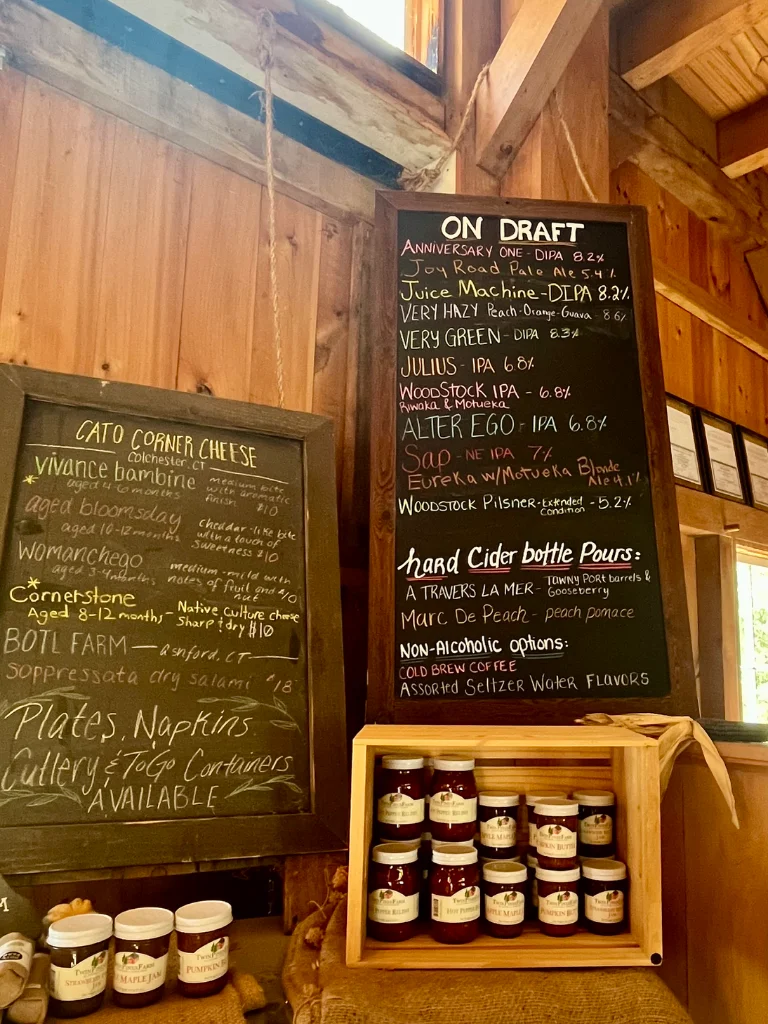 ON DRAFT
ANNIVERSARY ONE - DIPA 8.2%
Joy Road Pale Ale 5.4%
Juice Machine - DIPA 8.2%
VERY HAZY Peach-Orange-Guava - 8.6%
VERY GREEN - DIPA 8.3%
JULIUS - IPA 6.8%
WOODSTOCK IPA - 6.8%
Riwaka & Motueka
ALTER EGO - IPA 6.8%
Sap - NE IPA 7%
EUREKA W/MOTUEKA Blonde
Ale 4.1%
Woodstock Pilsner - Extended
Condition - 5.2%
hard Cider bottle Pours:
A TRAVERS LA MER - TAWNY PORT barrels &
Gooseberry
Marc De Peach - peach pomace
NON-Alcoholic options:
COLD BREW COFFEE
Assorted Seltzer Water Flavors
CATO CORNER CHEESE
Colchester, CT
* vivance bambine
aged 4-6 months
medium bite
with aromatic
finish $10
aged bloomsday
aged 10-12 months
cheddar-like bite
with a touch of
sweetness $10
Womanchego
aged 3-4 months
medium-mild with
notes of fruit and
nut $10
* Cornerstone
Aged 8-12 months - Native culture cheese
Sharp & dry $10
BOTL FARM — ashford, CT
soppressata dry salami $18
Plates, Napkins
Cutlery & ToGo Containers
AVAILABLE
TWIN PINES FARM
PEPPER RELISH
HOT PEPPER
MAPLE
PUMPKIN BUTTER
MAPLE JAM
PUMPKIN